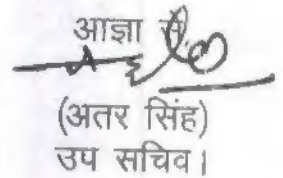 आज्ञा से
(अतर सिंह)
उप सचिव।